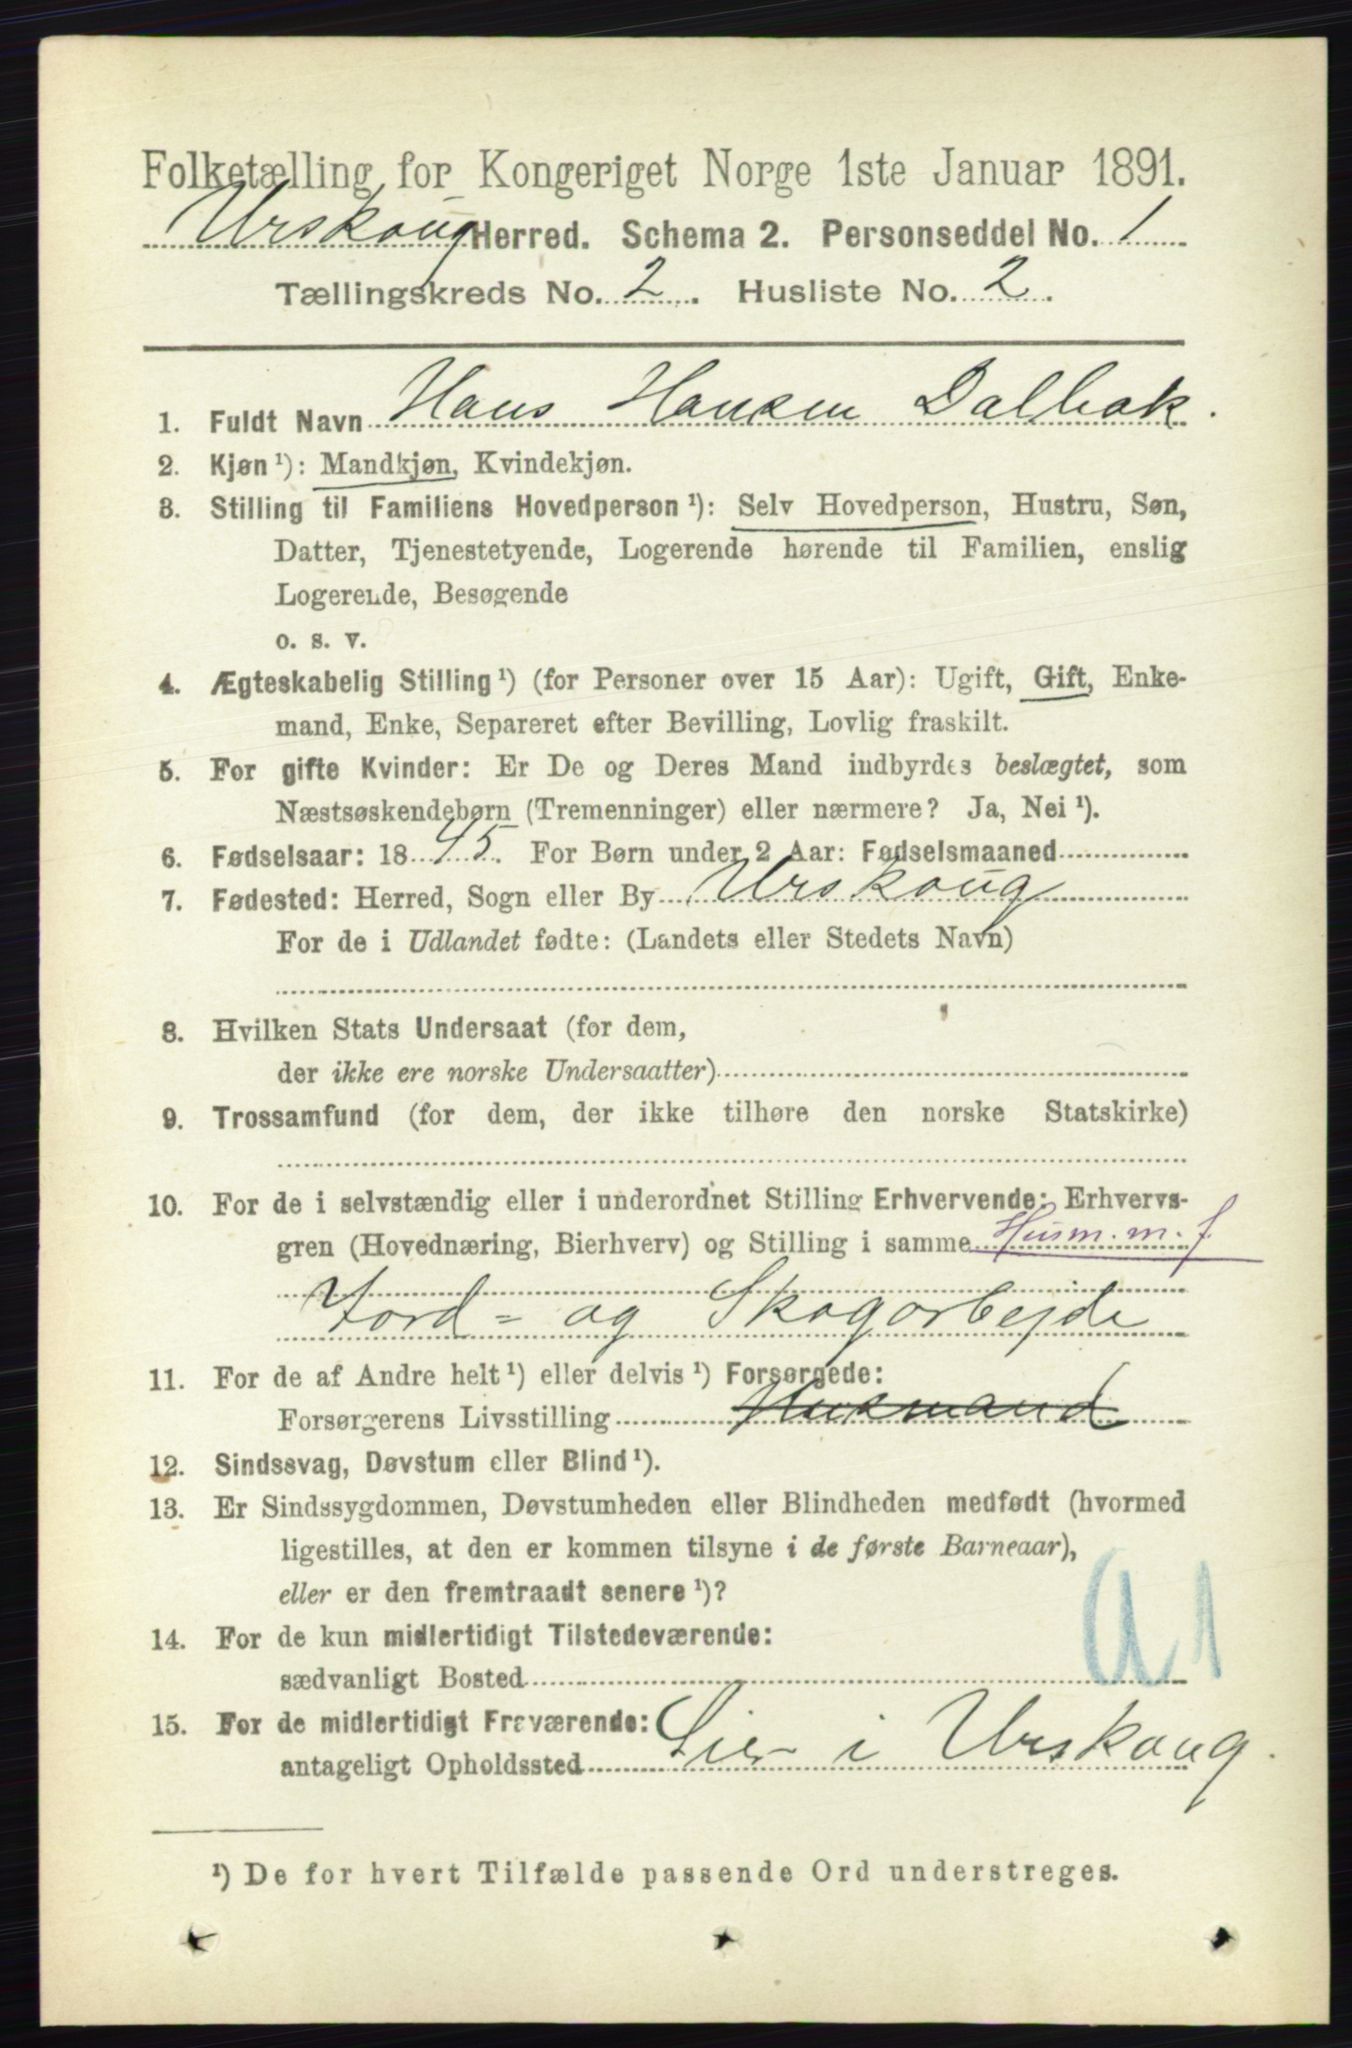 Folketælling for Kongeriget Norge 1ste Januar 1891.
Urskoug Herred. Schema 2. Personseddel No. 1
Tællingskreds No. 2. Husliste No. 2.
1. Fuldt Navn Hans Hansen Dalbak.
2. Kjøn ¹): Mandkjøn, Kvindekjøn.
3. Stilling til Familiens Hovedperson ¹): Selv Hovedperson, Hustru, Søn,
Datter, Tjenestetyende, Logerende hørende til Familien, enslig
Logerende, Besøgende
o. s. v.
4. Ægteskabelig Stilling ¹) (for Personer over 15 Aar): Ugift, Gift, Enke-
mand, Enke, Separeret efter Bevilling, Lovlig fraskilt.
5. For gifte Kvinder: Er De og Deres Mand indbyrdes beslægtet, som
Næstsøskendebørn (Tremenninger) eller nærmere? Ja, Nei ¹).
6. Fødselsaar: 1845. For Børn under 2 Aar: Fødselsmaaned
7. Fødested: Herred, Sogn eller By Urskoug
For de i Udlandet fødte: (Landets eller Stedets Navn)
8. Hvilken Stats Undersaat (for dem,
der ikke ere norske Undersaatter)
9. Trossamfund (for dem, der ikke tilhøre den norske Statskirke)
10. For de i selvstændig eller i underordnet Stilling Erhvervende: Erhvervs-
gren (Hovednæring, Bierhverv) og Stilling i samme Husm. m. J.
Jord- og Skogarbejde
11. For de af Andre helt ¹) eller delvis ¹) Forsørgede:
Forsørgerens Livsstilling Husmand
12. Sindssvag, Døvstum eller Blind ¹).
13. Er Sindssygdommen, Døvstumheden eller Blindheden medfødt (hvormed
ligestilles, at den er kommen tilsyne i de første Barneaar),
eller er den fremtraadt senere ¹)?
14. For de kun midlertidigt Tilstedeværende:
sædvanligt Bosted
a1
15. For de midlertidigt Fraværende:
antageligt Opholdssted Lier i Urskoug.
¹) De for hvert Tilfælde passende Ord understreges.